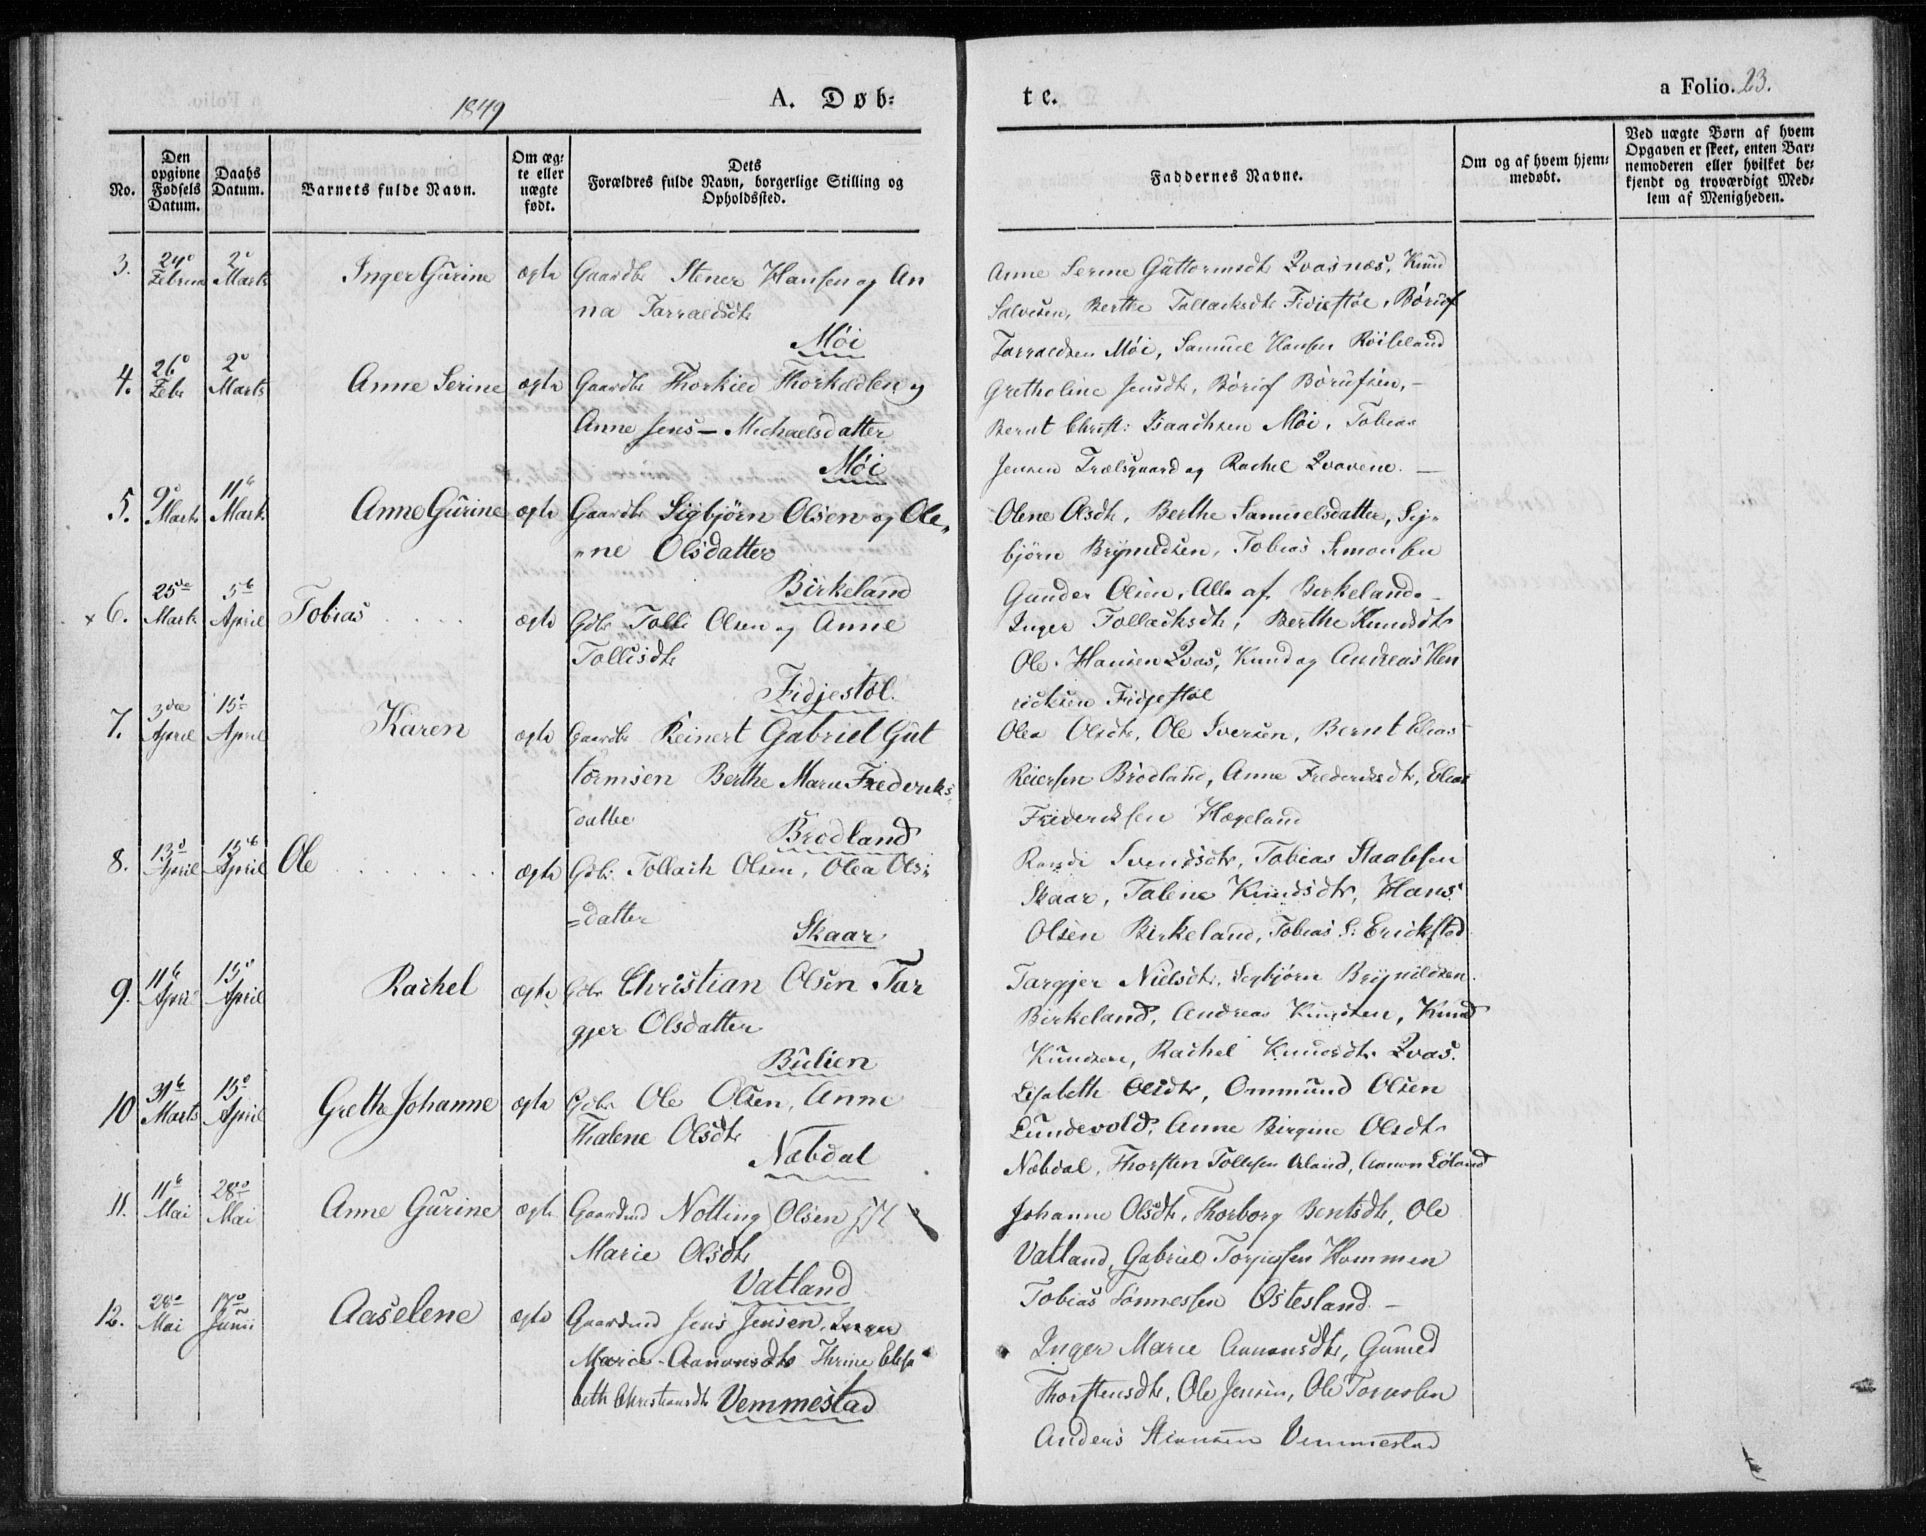 1849
A. Døb-
te.
a Folio. 23.
No.
Den opgivne Fødsels Datum.
Daabs Datum.
Barnets fulde Navn.
Om ægte eller uægte født.
Dets Forældres fulde Navn, borgerlige Stilling og Opholdssted.
Faddernes Navne.
Om og af hvem hjemmedøbt.
Ved uægte Børn af hvem Opgaven er skeet, enten Barnemoderen eller hvilket bekjendt og troværdigt Medlem af Menigheden.
3. 24 Februar 2 Marts Inger Gurine ægte Gaardbr Stener Hansen og An
na Tarraldsdtr
Møi
Anne Serine Guttormsdt Qvasnæs, Knud
Salvesen, Berthe Tollacksdtr Fidjestøl, Børuf
Tarraldsen Møi, Samuel Hansen Røiseland
4. 26 Febr 2 Marts Anne Serine ægte Gaardbr Thorkied Thorkildsen og
Anne Jens- Michaelsdatter
Møi
Gretholine Jensdtr, Børuf Børufsen,
Bernt Christ: Isaachsen Møi, Tobias
Jensen Trælsgaard og Rachel Qvavene.
5. 9 Marts 11 Marts Anne Gurine ægte Gaardbr Sigbjørn Olsen og Ole
ne Olsdatter
Birkeland
Olene Olsdtr, Berthe Samuelsdatter, Sig
bjørn Brynildsen, Tobias Simonsen
Gunder Olsen, Alle af Birkeland.
x 6. 25 Marts 5 April Tobias . . . . ægte Gdbr Tolle Olsen og Anne
Tollisdtr
Fidjestøl.
Inger Tollacksdtr, Berthe Knudsdtr
Ole Hansen Qvas, Knud og Andreas Hen
ricksen Fidjestøl
7. 3 April 15 April Karen ægte Gaardbr Reinert Gabriel Gut
tormsen Berthe Marie Frederiks
datter
Brodland
Olea Olsdtr, Ole Iversen, Bernt Elias
Reiersen Brodland, Anne Frederiksdtr, Elias
Fredericksen Hægeland
8. 13 April 15 April Ole . . . . . . ægte Gdbr Tollack Olsen, Olea Ols
=datter
Skaar
Randi Svendsdtr, Tobias Staalesen
Skaar, Talene Knudsdtr, Hans
Olsen Birkeland, Tobias S: Erickstad
9. 11 April 15 April Rachel ægte Gdbr Christian Olsen Tar
gjer Olsdatter
Bulien
Targjer Nielsdtr, Sigbjørn Brynildsen
Birkeland, Andreas Knudsen, Knud
Knudsen, Rachel Knudsdtr Qvas.
10 31 Marts 15 April Grethe Johanne ægte Gdbr Ole Olsen, Anne
Thalene Olsdtr
Næbdal
Lisabeth Olsdtr, Ommund Olsen
Lundevold, Anne Birgine Olsdtr
Næbdal, Thorsten Tollefsen Arland, Aanon Løland
11. 11 Mai 28 Mai Anne Gurine ægte Gaardmd Notting Olsen
Marie Olsdtr
Vatland
Johanne Olsdtr, Thorborg Bentsdtr, Ole
Vatland, Gabriel Torjussen Hommen
Tobias Sønnessen Østesland.
12. 28 Mai 17 Junii Aaselene ægte Gaardmd Jens Jensen, Inger
Marie Aanonsdtr Thrine Elisa
beth Christiansdtr Vemmestad
Inger Marie Aanonsdtr, Guned
Thorstensdtr, Ole Jensen, Ole Tønnesen
Anders Vemmestad